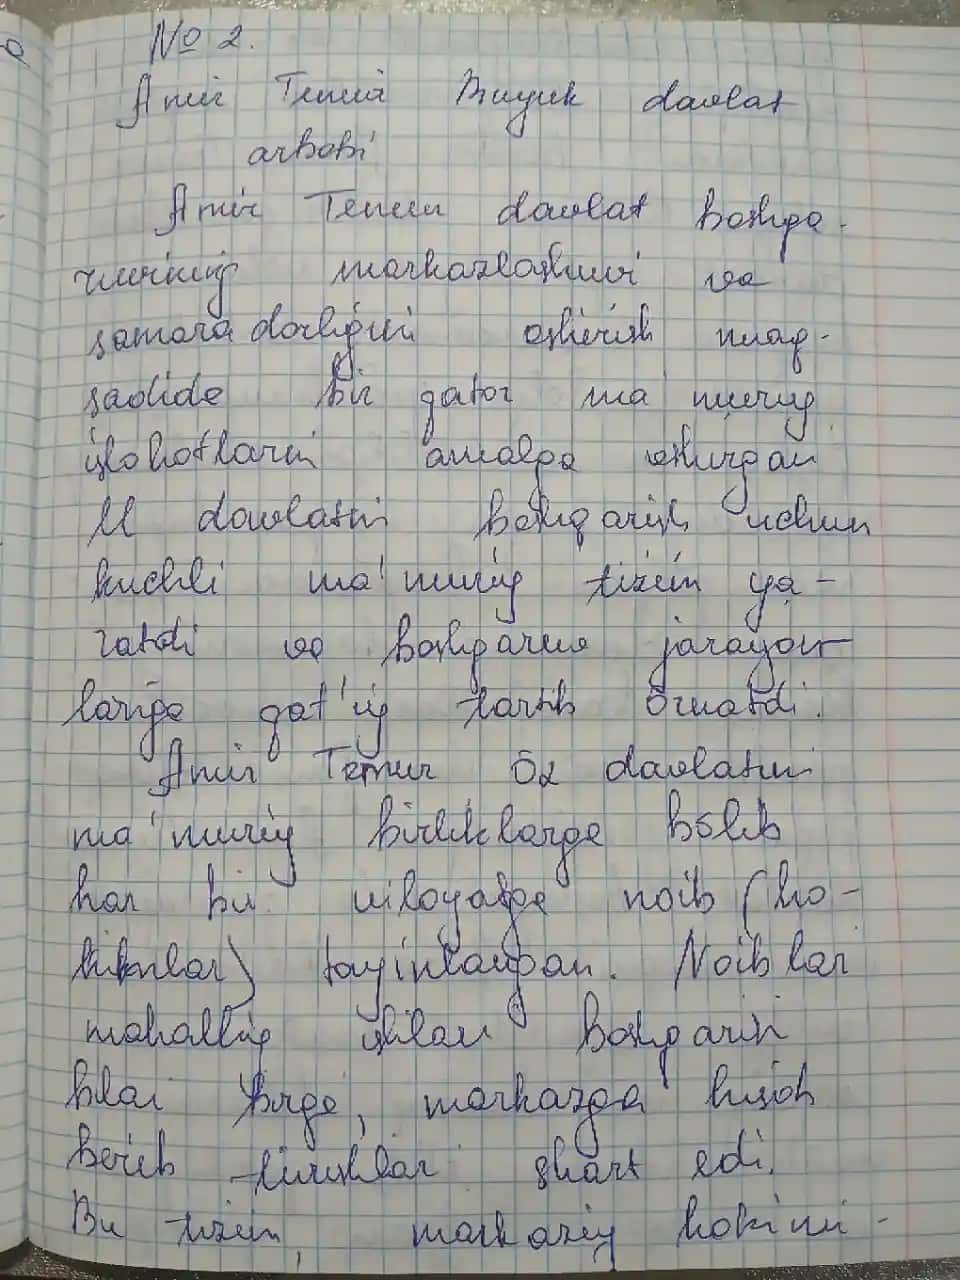 № 2.
Amir Temur Buyuk davlat
arbobi
Amir Temur davlat boshqa-
ruvining markazlashuvi va
samaradorligini oshirish maq-
sadida bir qator ma'muriy
islohotlarni amalga oshirgan
U davlatni boshqarish uchun
kuchli ma'muriy tizim ya-
ratdi va boshqaruv jarayon
lariga qat'iy tartib o'rnatdi.
Amir Temur Öz davlatini
ma'muriy birliklarga bölib
har bir viloyatga noib (ho-
kimlar) tayinlangan. Noiblar
mahalliy ishlarni boshqarish
bilan birga, markazga hisob
berib turishlari shart edi.
Bu tizim, markaziy hokimi-